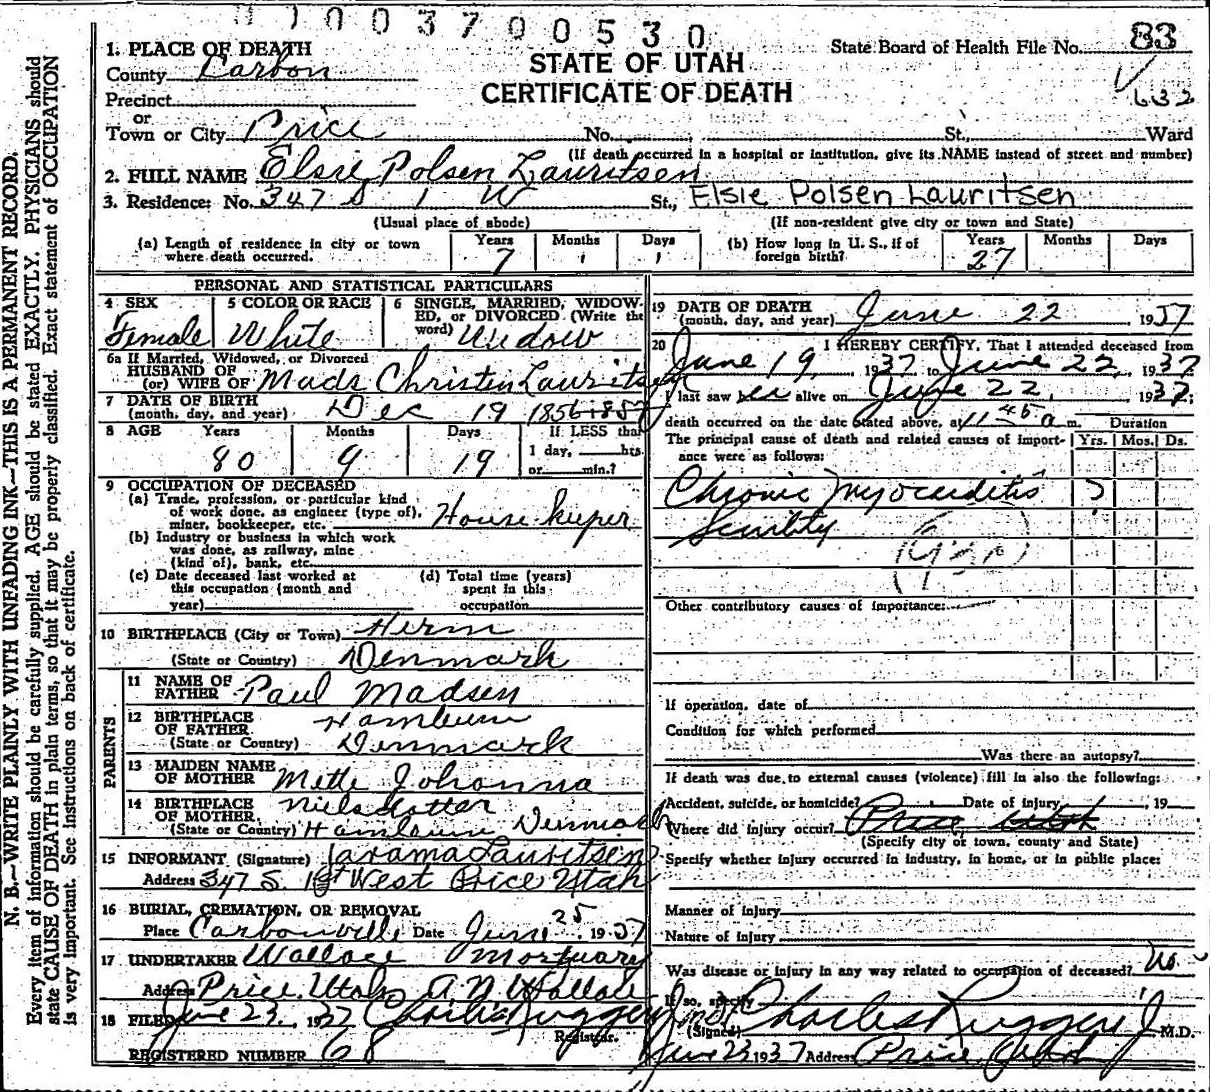 1003700530
State Board of Health File No. 83
632
STATE OF UTAH
CERTIFICATE OF DEATH
1. PLACE OF DEATH
County Carbon
Precinct
or
Town or City Price No. St. Ward
(If death occurred in a hospital or institution, give its NAME instead of street and number)
2. FULL NAME Elsie Polsen Lauritsen
3. Residence: No. 347 S 1 W St., Elsie Polsen Lauritsen
(Usual place of abode) (If non-resident give city or town and State)
(a) Length of residence in city or town where death occurred. Years 7 Months Days
(b) How long in U. S., if of foreign birth? Years 27 Months Days
PERSONAL AND STATISTICAL PARTICULARS
4 SEX Female
5 COLOR OR RACE White
6 SINGLE, MARRIED, WIDOWED, or DIVORCED (Write the word) Widow
6a If Married, Widowed, or Divorced
HUSBAND OF
(or) WIFE OF Mads Christen Lauritsen
7 DATE OF BIRTH
(month, day, and year) Dec 19 1856-1857
8 AGE Years 80 Months 9 Days 19 If LESS than
1 day, hrs.
or min.?
9 OCCUPATION OF DECEASED
(a) Trade, profession, or particular kind
of work done, as engineer (type of),
miner, bookkeeper, etc. House keeper
(b) Industry or business in which work
was done, as railway, mine
(kind of), bank, etc.
(c) Date deceased last worked at
this occupation (month and
year)
(d) Total time (years)
spent in this
occupation
10 BIRTHPLACE (City or Town)
(State or Country) Denmark
PARENTS
11 NAME OF
FATHER Paul Madsen
12 BIRTHPLACE
OF FATHER
(State or Country) Denmark
13 MAIDEN NAME
OF MOTHER Mette Johanna
Nielsdatter
14 BIRTHPLACE
OF MOTHER
(State or Country) Denmark
15 INFORMANT (Signature) Lauritsen
Address 347 S. 1st West Price Utah
16 BURIAL, CREMATION, OR REMOVAL
Place Carbonville Date June 25 1937
17 UNDERTAKER Wallace Mortuary
Address Price, Utah A. N. Wallace
18 FILED June 23, 1937 Charles Ruggeri
Registrar.
REGISTERED NUMBER 68
19 DATE OF DEATH
(month, day, and year) June 22 1937
20 I HEREBY CERTIFY, That I attended deceased from
June 19, 1937 to June 22, 1937
I last saw her alive on June 22, 1937;
death occurred on the date stated above, at 11 45 a m. Duration
The principal cause of death and related causes of importance were as follows: Yrs. Mos. Ds.
Chronic Myocarditis
Senility
(930)
Other contributory causes of importance:
If operation, date of
Condition for which performed
Was there an autopsy?
If death was due to external causes (violence) fill in also the following:
Accident, suicide, or homicide? Date of injury , 19
Where did injury occur? Price Utah
(Specify city or town, county and State)
Specify whether injury occurred in industry, in home, or in public place:
Manner of injury
Nature of injury
Was disease or injury in any way related to occupation of deceased? No.
If so, specify
(Signed) Charles Ruggeri J M.D.
June 23 1937 Address Price, Utah
N. B.—WRITE PLAINLY WITH UNFADING INK—THIS IS A PERMANENT RECORD.
Every item of information should be carefully supplied. AGE should be stated EXACTLY. PHYSICIANS should
state CAUSE OF DEATH in plain terms, so that it may be properly classified. Exact statement of OCCUPATION
is very important. See instructions on back of certificate.